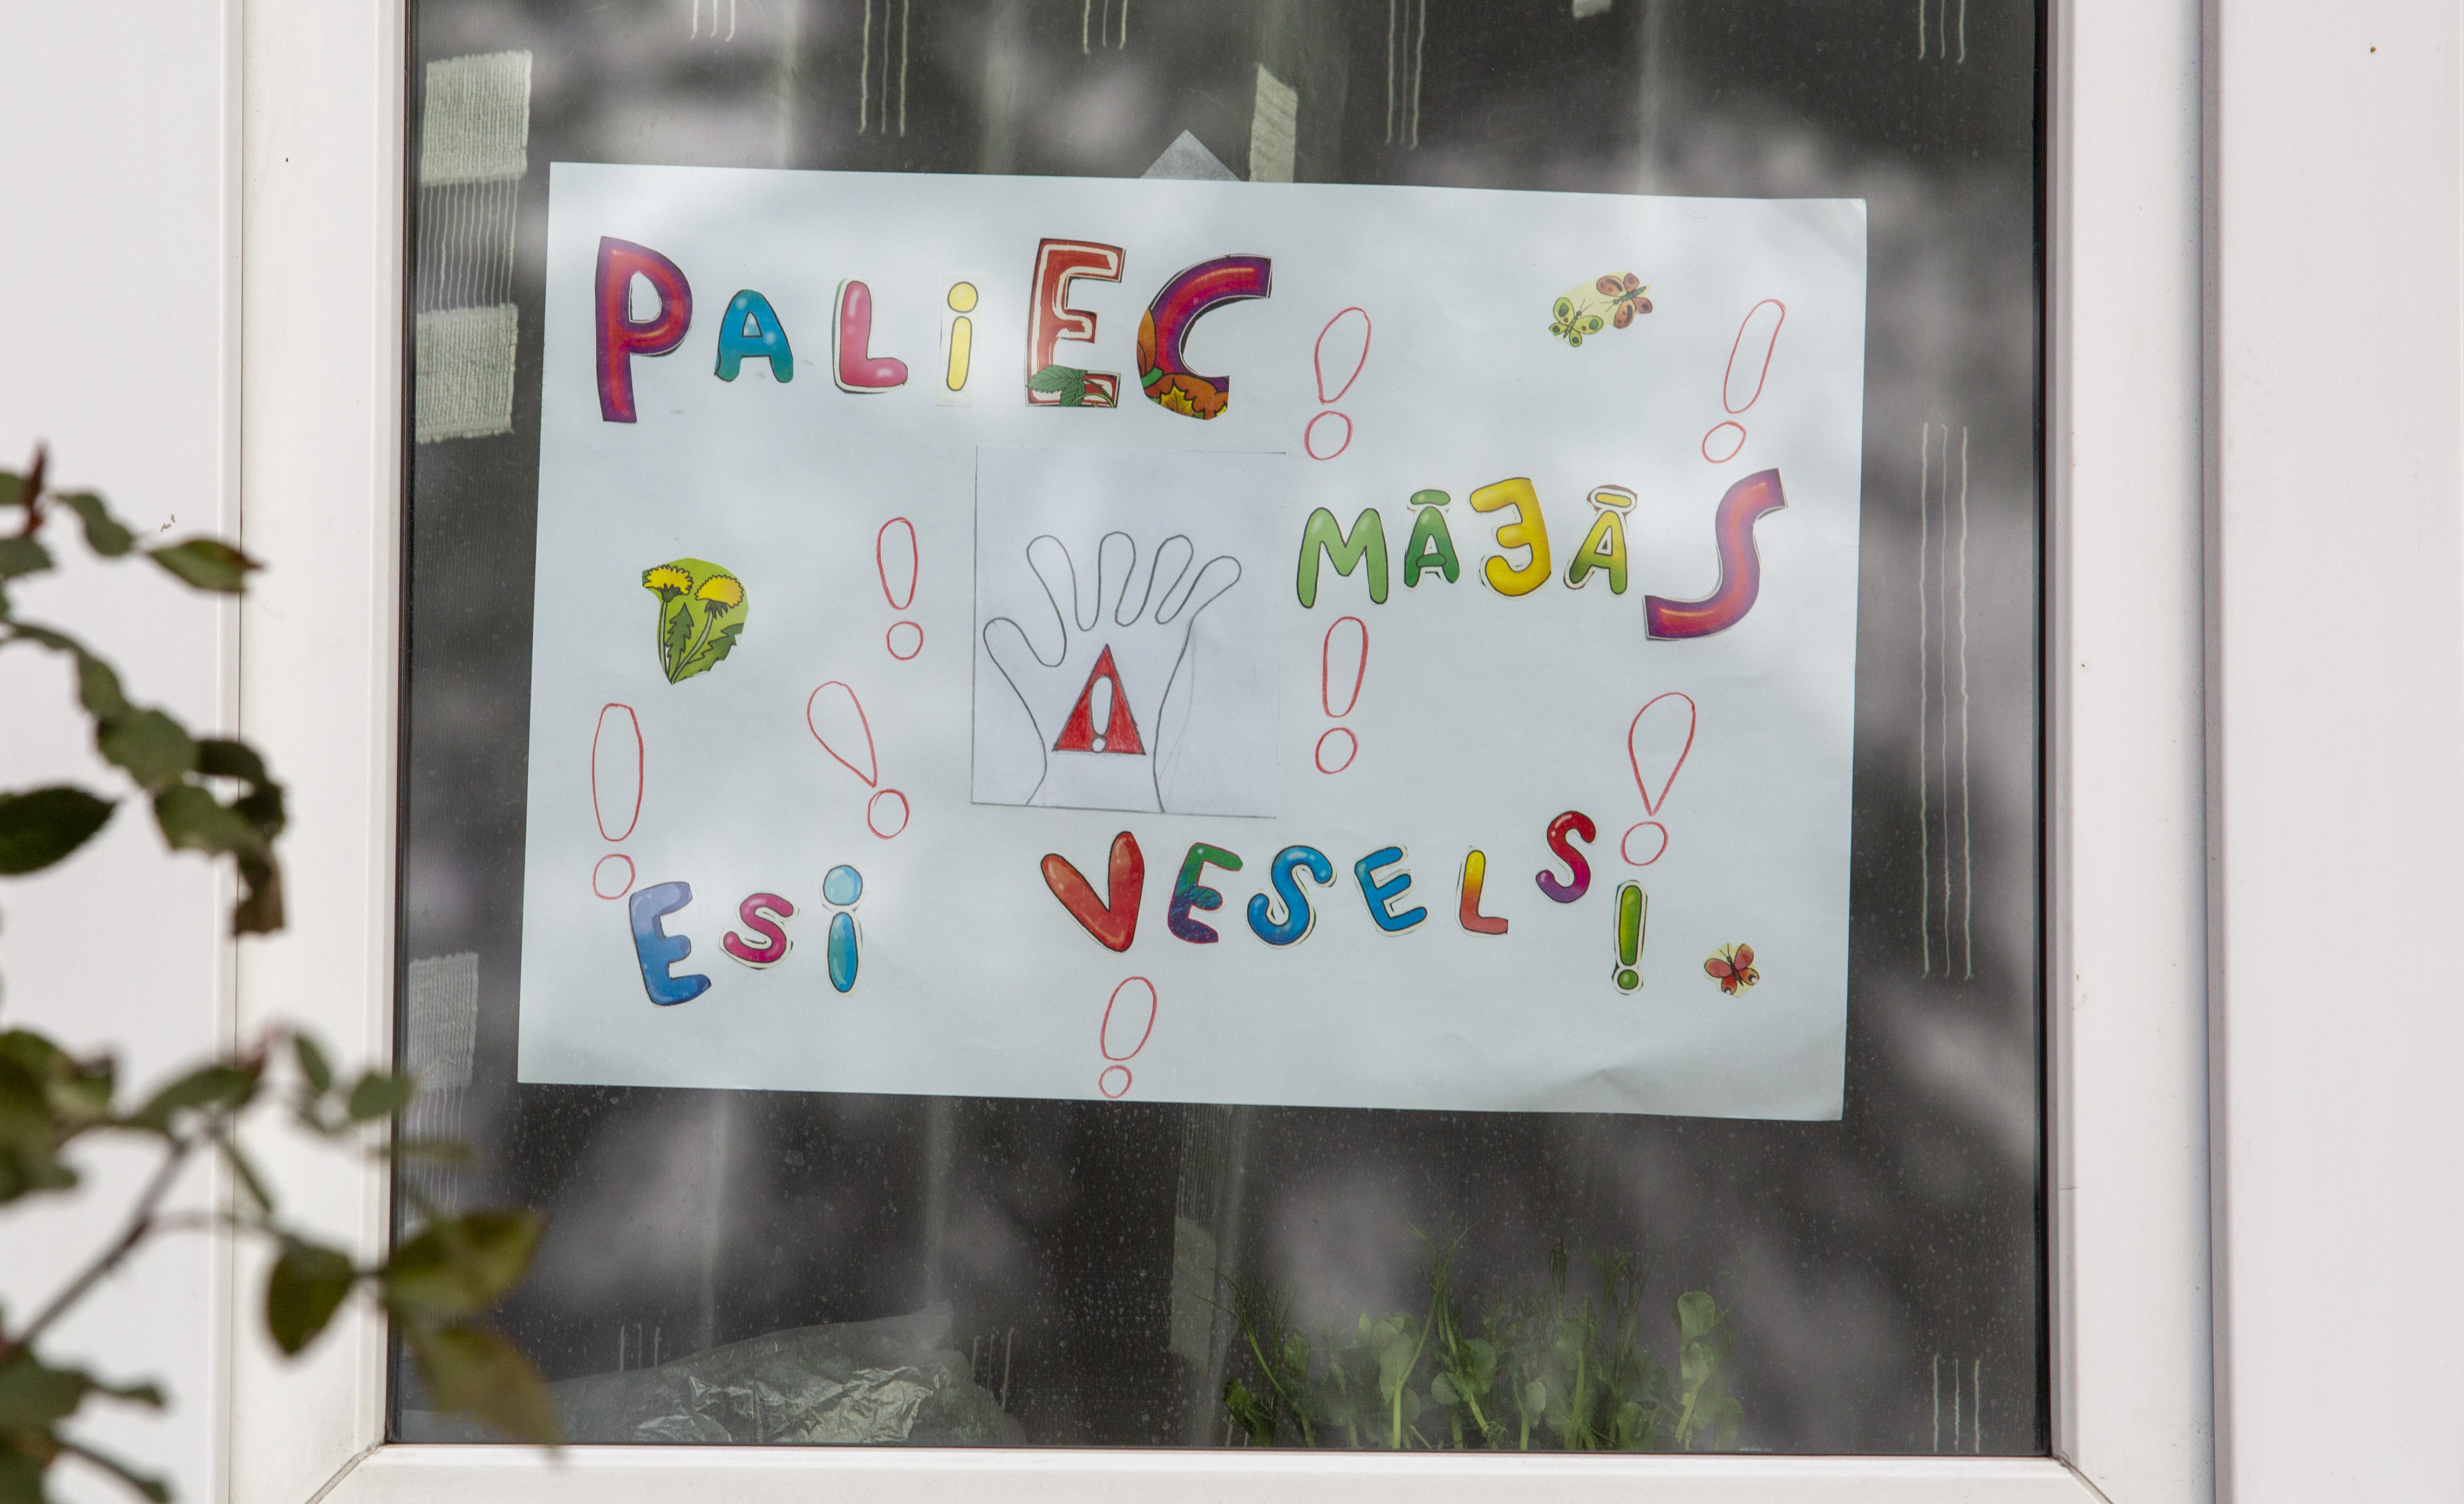 PALiEC !
!
! MĀJĀS
!
! ! ! !
ESi VESELS!
!